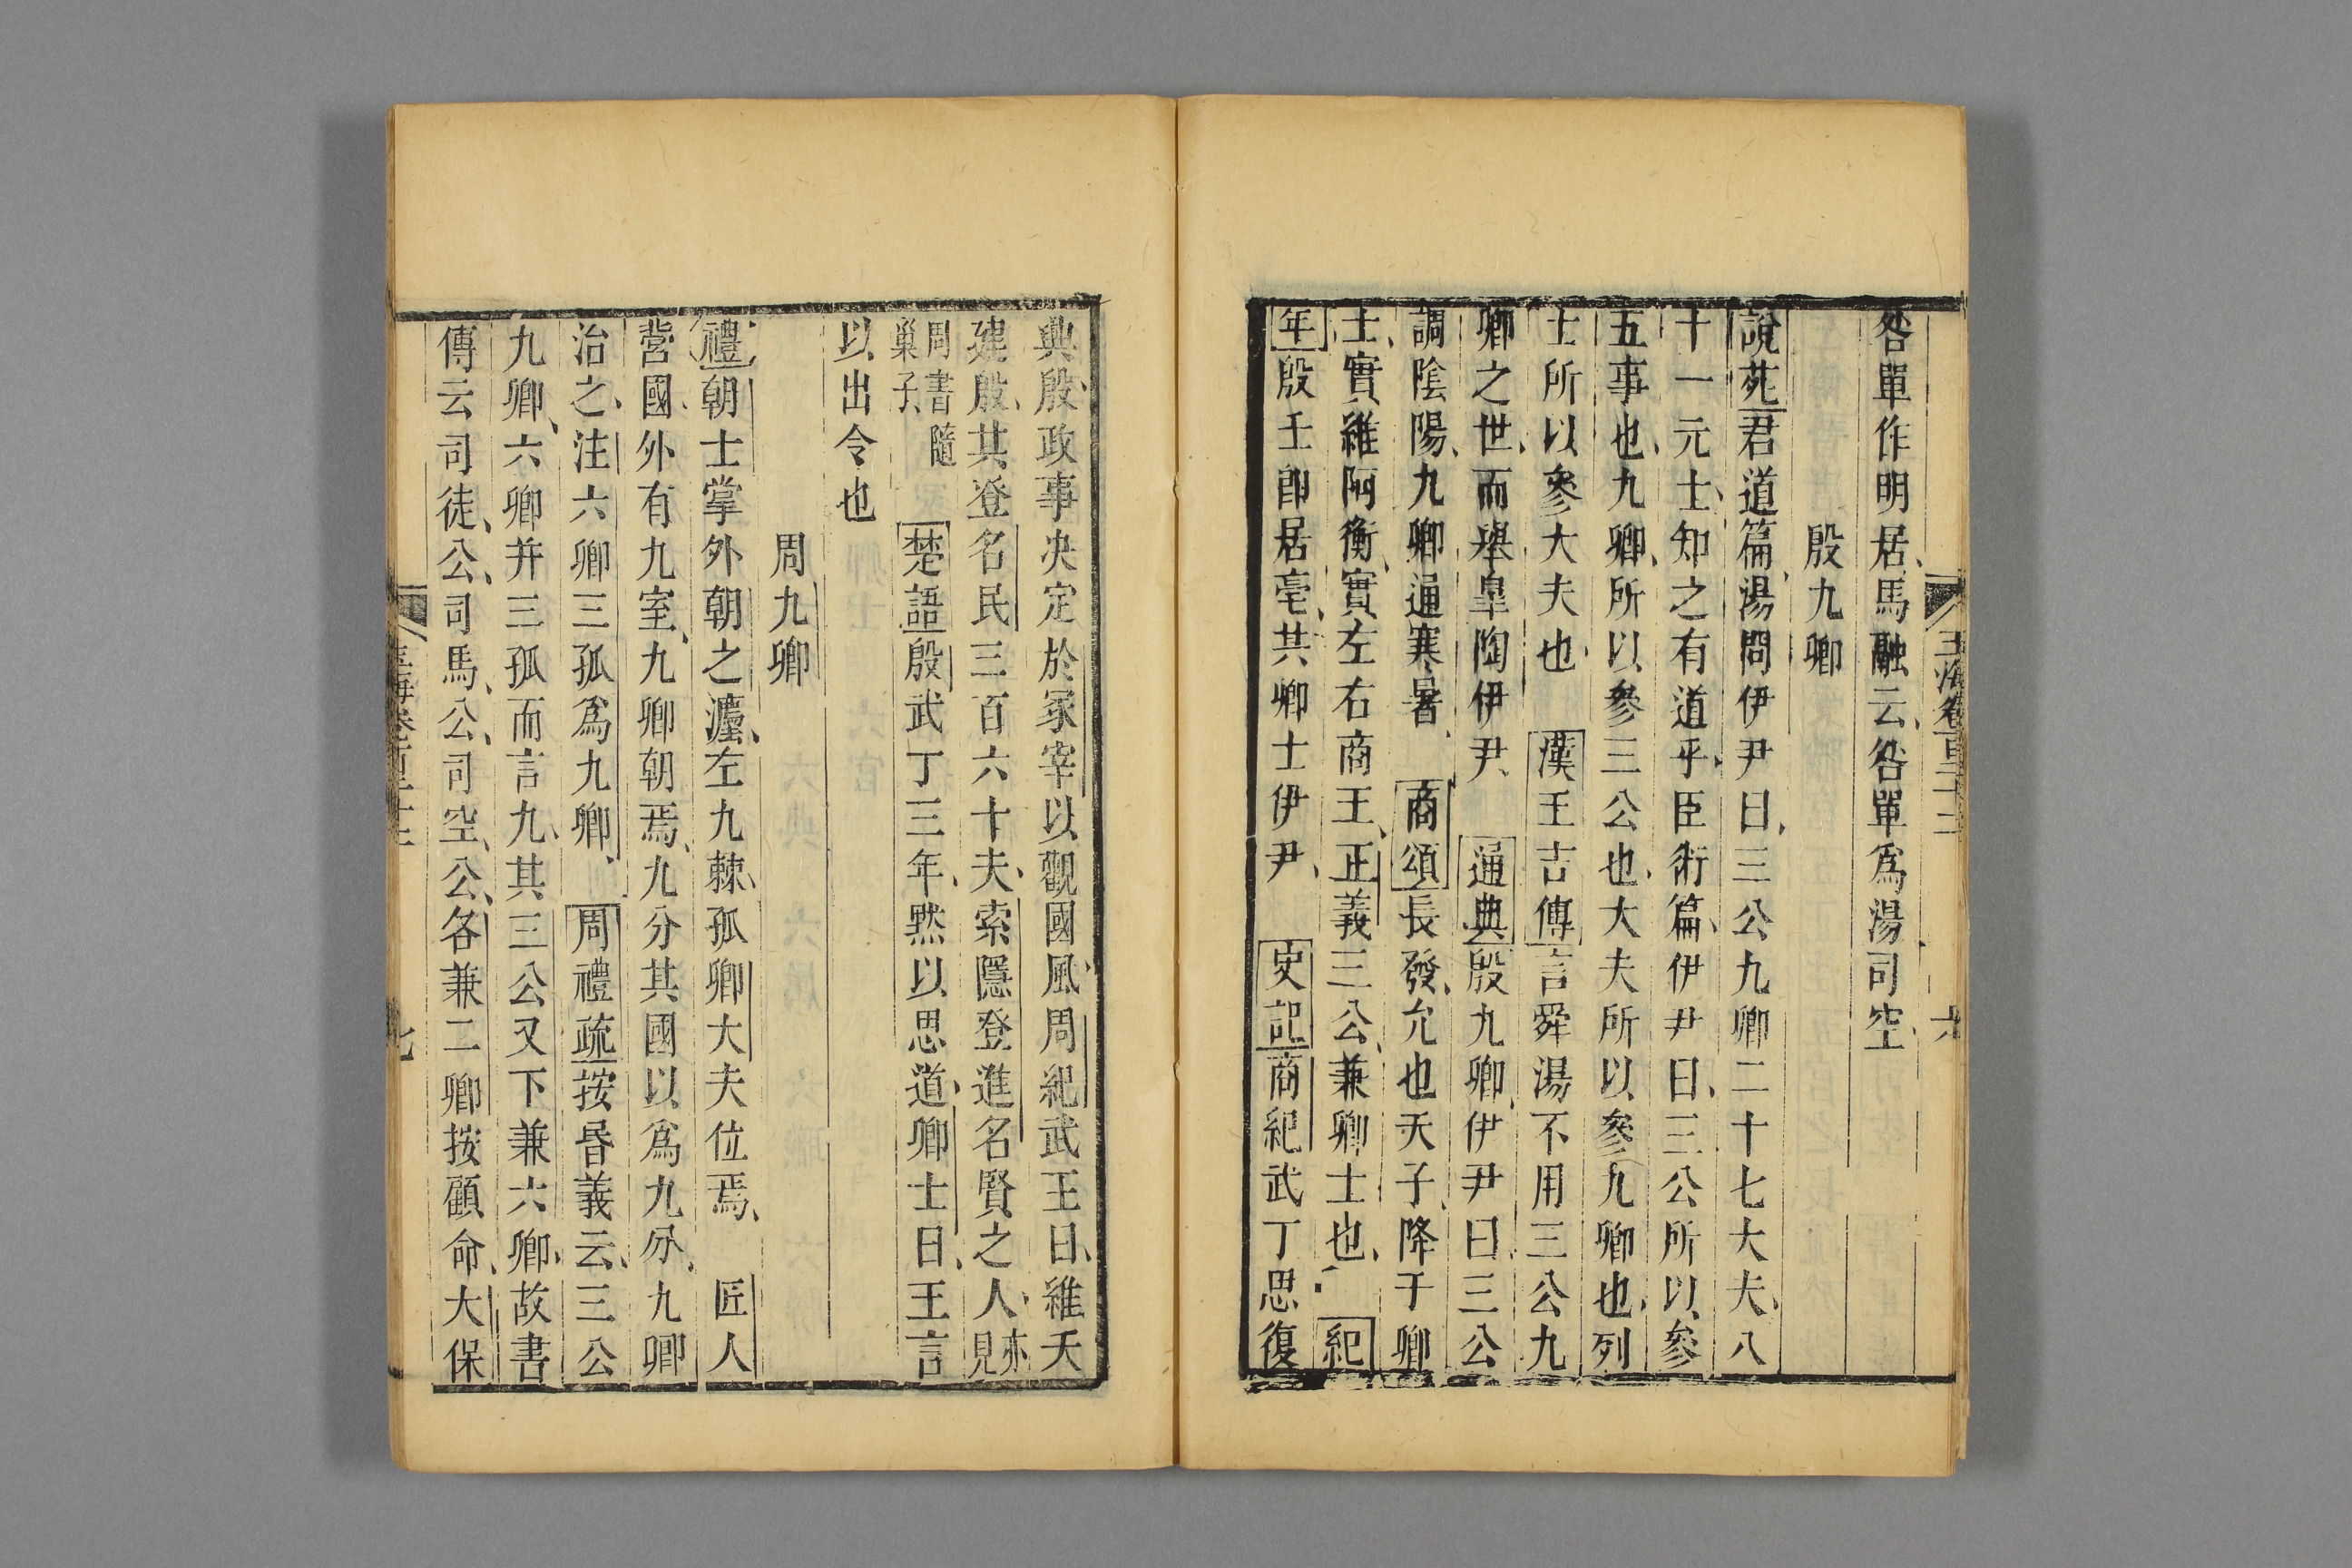 玉海卷百二十二 六
咎單作明居馬融云咎單爲湯司空
殷九卿
說苑君道篇湯問伊尹曰三公九卿二十七大夫八
十一元士知之有道乎臣術篇伊尹曰三公所以參
五事也九卿所以參三公也大夫所以參九卿也列
士所以參大夫也 漢王吉傳言舜湯不用三公九
卿之世而舉臯陶伊尹 通典殷九卿伊尹曰三公
調陰陽九卿通寒暑 商頌長發允也天子降于卿
士實維阿衡實左右商王正義三公兼卿士也 紀
年殷王卽居亳其卿士伊尹 史記商紀武丁思復
典殷政事决定於冢宰以觀國風周紀武王曰維天
建殷其登名民三百六十夫索隱登進名賢之人亦見
周書隨巢子 楚語殷武丁三年黙以思道卿士曰王言
以出令也
周九卿
禮朝士掌外朝之灋左九棘孤卿大夫位焉 匠人
營國外有九室九卿朝焉九分其國以爲九分九卿
治之注六卿三孤爲九卿 周禮疏按昬義云三公
九卿六卿并三孤而言九其三公又下兼六卿故書
傳云司徒公司馬公司空公各兼二卿按顧命大保
玉海卷百二十二 七